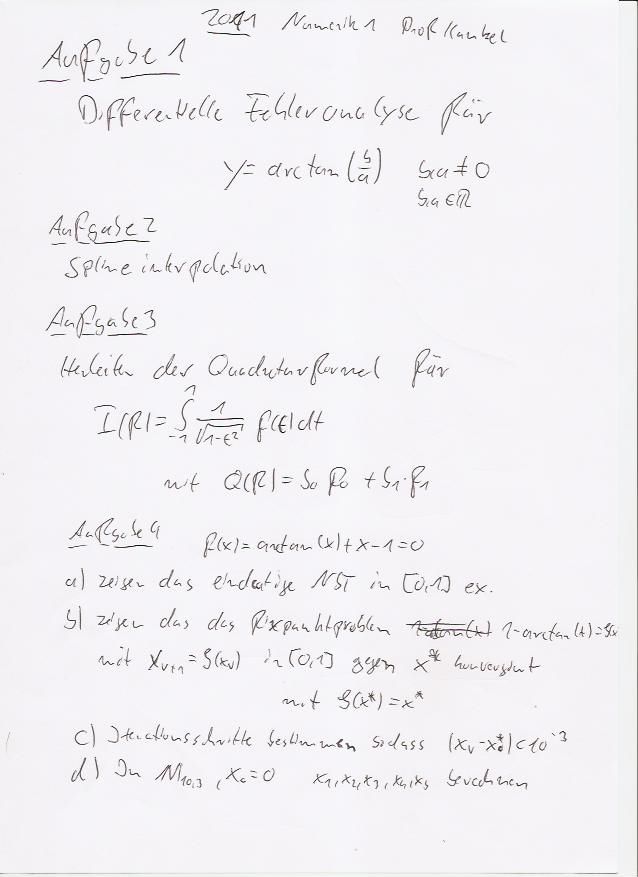 2011 Numerik 1 Prof Kunkel
Aufgabe 1
Differentielle Fehleranalyse für
y = arctan(b/a) b,a ≠ 0
b,a ∈ ℝ
Aufgabe 2
Splineinterpolation
Aufgabe 3
Herleiten der Quadraturformel für
I(f) = ∫_{-1}^{1} 1/√(1-t²) f(t) dt
mit Q(f) = b₀ f₀ + b₁·f₁
Aufgabe 4 f(x) = arctan(x) + x - 1 = 0
a) zeigen das eindeutige NST in [0,1] ex.
b) zeigen das das Fixpunktproblem 1-arctan(x) = g(x
mit x_{ν+1} = g(x_ν) in [0,1] gegen x* konvergiert
mit g(x*) = x*
c) Iterationsschritte bestimmen sodass |x_ν - x*| < 10^{-3}
d) In M_{10,3}, x₀ = 0 x₁, x₂, x₃, x₄, x₅ berechnen